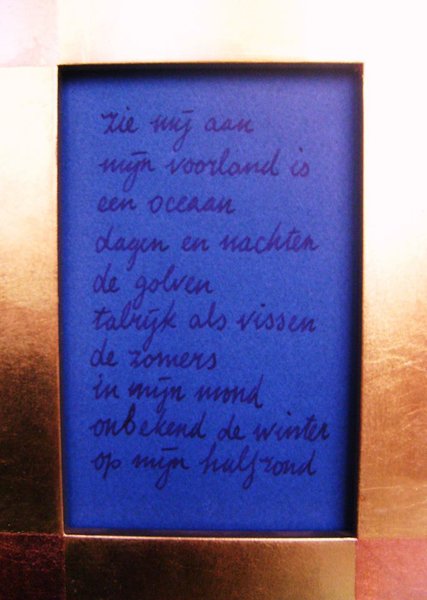 zie mij aan
mijn voorland is
een oceaan
dagen en nachten
de golven
talrijk als vissen
de zomers
in mijn mond
onbekend de winter
op mijn halfrond